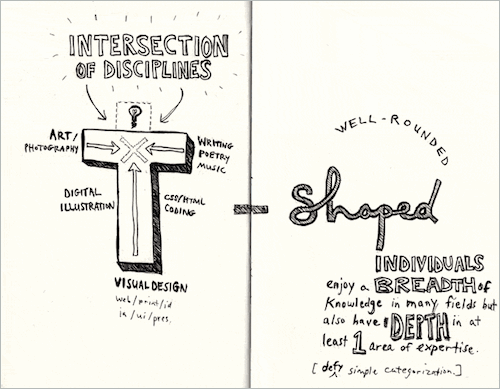 INTERSECTION
OF DISCIPLINES
ART/
PHOTOGRAPHY
WRITING
POETRY
MUSIC
DIGITAL
ILLUSTRATION
CSS/HTML
CODING
VISUAL DESIGN
web/print/id
ia/ui/pres.
WELL-ROUNDED
- Shaped
INDIVIDUALS
enjoy a BREADTH of
Knowledge in many fields but
also have DEPTH in at
least 1 area of expertise.
[defy simple categorization.]